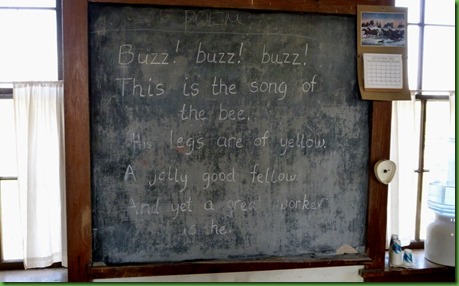 POEM
Buzz! buzz! buzz!
This is the song of
the bee.
His legs are of yellow.
A jolly good fellow
And yet a great worker
is he.